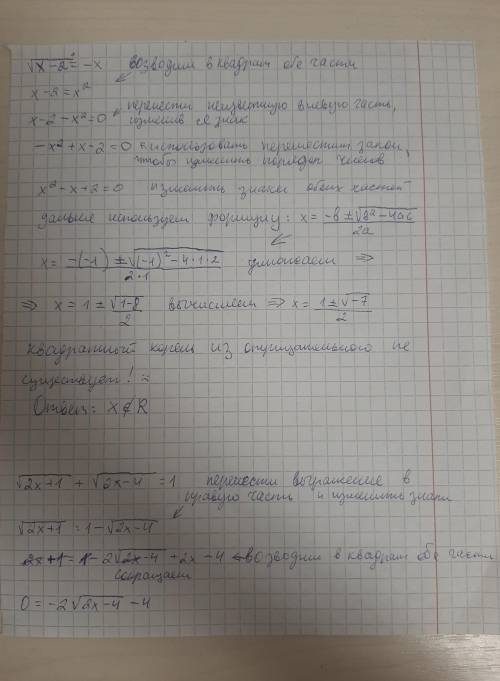 √x-2 = -x возводим в квадрат обе части
x-2 = x²
x-2-x²=0 перенести неизвестную в левую часть,
изменив её знак
-x²+x-2=0 использовать переместит. закон,
чтобы изменить порядок членов
x²-x+2=0 изменить знаки обеих частей
дальше используем формулу: x = -b ± √b²-4ac / 2a
x = -(-1) ± √(-1)²-4·1·2 / 2·1 умножаем ⇒
⇒ x = 1 ± √1-8 / 2 вычисляем ⇒ x = 1±√-7 / 2
квадратный корень из отрицательного не
существует!
Ответ: x∉R
√2x+1 + √2x-4 = 1 перенести выражение в
правую часть и изменить знак
√2x+1 = 1-√2x-4
2x+1 = 1-2√2x-4 + 2x-4 возводим в квадрат обе части
сокращаем
0 = -2√2x-4 -4